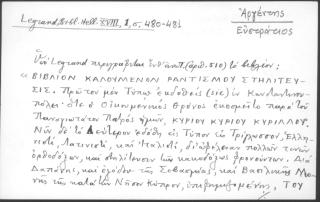 Legrand, Bibl. Hell. XVIII, 1, σ. 480-481
Ἀργέντης
Εὐστράτιος
Ὑπὸ Legrand περιγράφεται ὑπ' ἀριθ. (ἀρθ. 510) τὸ βιβλίον:
"ΒΙΒΛΙΟΝ ΚΑΛΟΥΜΕΝΟΝ ΡΑΝΤΙΣΜΟΥ ΣΤΗΛΙΤΕΥ-
ΣΙΣ. Πρῶτον μὲν Τύπῳ ἐκδοθεὶς (sic) ἐν Κωνσταντινου-
πόλει· ὅτε ὁ Οἰκουμενικὸς Θρόνος ἐκοσμεῖτο παρὰ τοῦ
Παναγιωτάτου Πατρὸς ἡμῶν, ΚΥΡΙΟΥ ΚΥΡΙΟΥ ΚΥΡΙΛΛΟΥ.
Νῦν δὲ τὸ Δεύτερον ἐδόθη εἰς Τύπον ἐν Τρίγλωσσον, Ἑλλη-
νιστί, Λατινιστί, καὶ Ἰταλιστί, δι' ὠφέλειαν πολλῶν τινῶν
ὀρθοδόξων, καὶ στηλίτευσιν τῶν κακοδόξως φρονούντων. Διὰ
Δαπάνης, καὶ ἐξόδου τῆς Σεβασμίας, καὶ Βασιλικῆς Μο-
νῆς τῆς κατὰ τὴν Νῆσον Κύπρον, ἐπευφημουμένης, ΤΟΥ